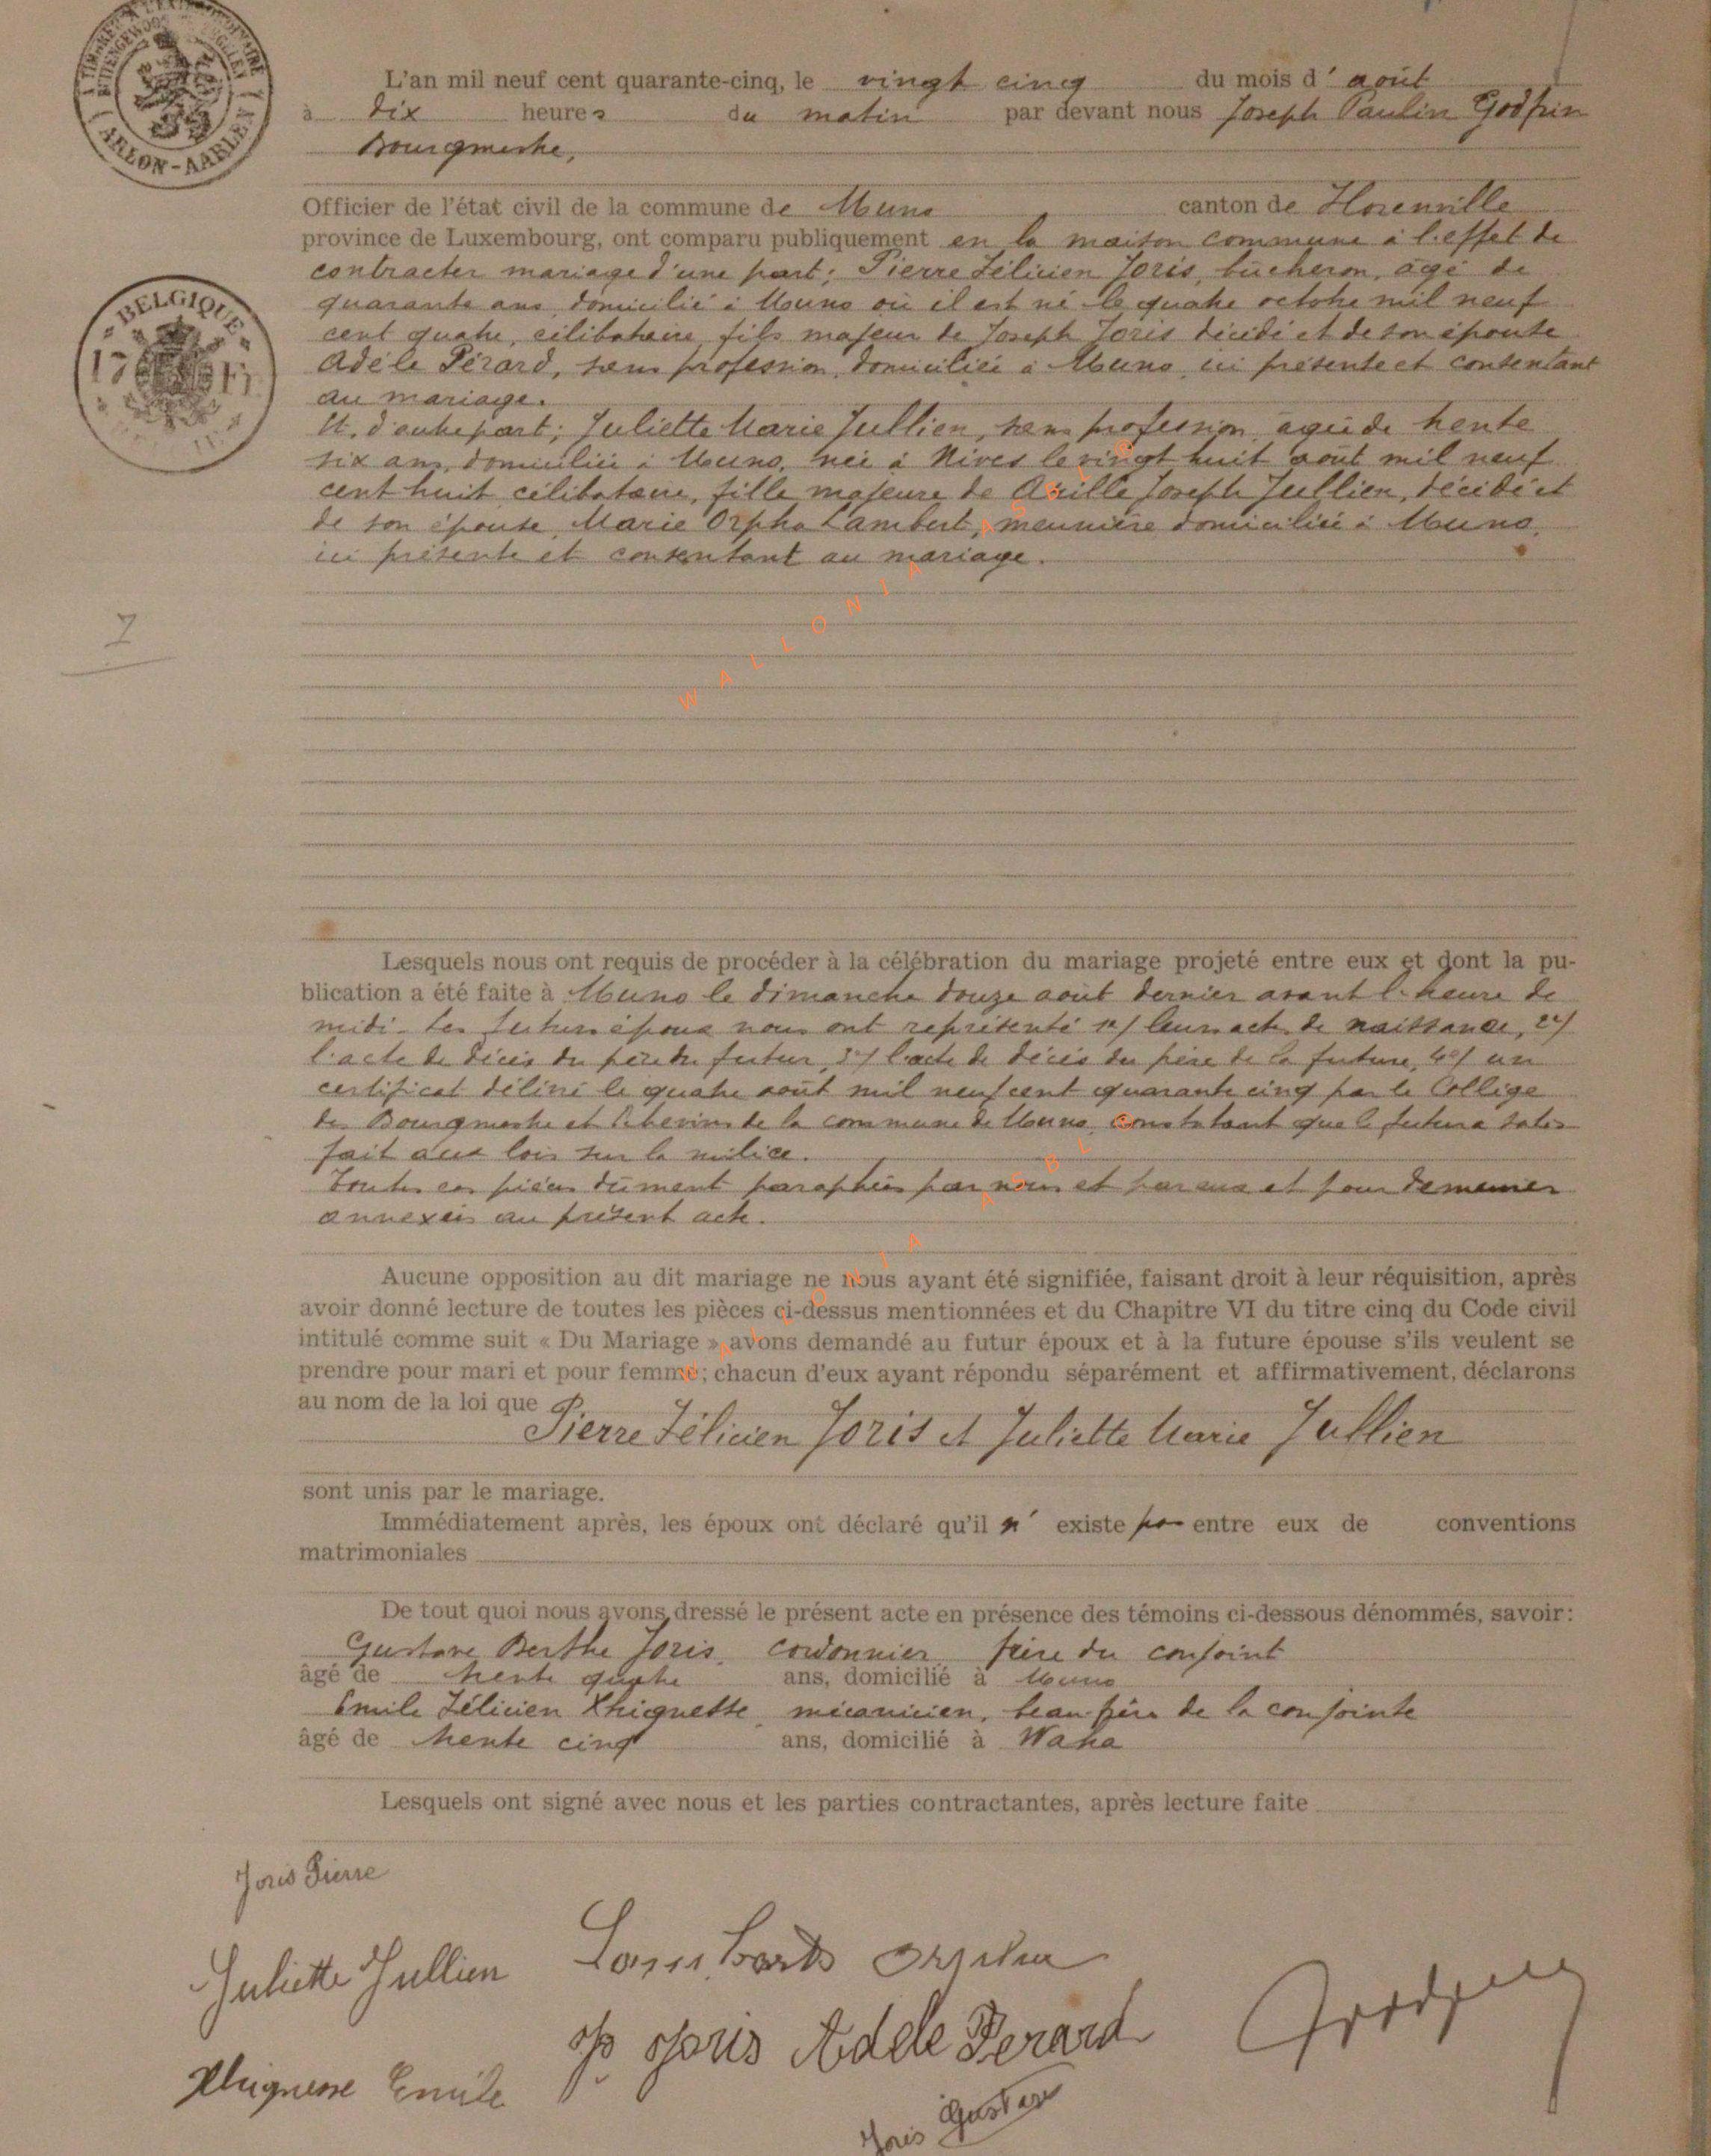 TIMBRE A L'EXTRAORDINAIRE
ARLON-AARLEN
L'an mil neuf cent quarante-cinq, le vingt cinq du mois d' août
à dix heures du matin par devant nous Joseph Paulin Godfrin
Bourgmestre,
Officier de l'état civil de la commune de Muno canton de Florenville
province de Luxembourg, ont comparu publiquement en la maison commune à l'effet de
contracter mariage d'une part; Pierre Félicien Joris, bûcheron, âgé de
BELGIQUE
quarante ans, domicilié à Muno où il est né le quatre octobre mil neuf
cent quatre, célibataire, fils majeur de Joseph Joris décédé et de son épouse
Adèle Pérard, sans profession, domiciliée à Muno, ici présente et consentant
au mariage.
Et, d'autre part; Juliette Marie Jullien, sans profession, agée de trente
six ans, domiciliée à Muno, née à Nives le vingt huit août mil neuf
cent huit, célibataire, fille majeure de Joseph Jullien, décédé et
de son épouse, Marie Orpha Lambert, meunière domiciliée à Muno,
ici présente et consentant au mariage.
WALLONIA ASBL
Lesquels nous ont requis de procéder à la célébration du mariage projeté entre eux et dont la pu-
blication a été faite à Muno le dimanche douze août dernier avant l'heure de
midi. Les futurs époux nous ont représenté 1°/ leurs acte de naissance, 2°/
l'acte de décès du père du futur, 3°/ l'acte de décès du père de la future, 4°/ un
certificat délivré le quatre août mil neuf cent quarante cinq par le Collège
des Bourgmestre et Echevins de la commune de Muno, constatant que le futur a satis
fait aux lois sur la milice.
Toutes ces pièces dûment paraphées par nous et par eux et pour demeurer
annexées au présent acte.
WALLONIA ASBL
Aucune opposition au dit mariage ne nous ayant été signifiée, faisant droit à leur réquisition, après
avoir donné lecture de toutes les pièces ci-dessus mentionnées et du Chapitre VI du titre cinq du Code civil
intitulé comme suit « Du Mariage » avons demandé au futur époux et à la future épouse s'ils veulent se
prendre pour mari et pour femme; chacun d'eux ayant répondu séparément et affirmativement, déclarons
au nom de la loi que
Pierre Félicien Joris et Juliette Marie Jullien
sont unis par le mariage.
Immédiatement après, les époux ont déclaré qu'il n' existe pas entre eux de conventions
matrimoniales
De tout quoi nous avons dressé le présent acte en présence des témoins ci-dessous dénommés, savoir:
Gustave Berthe Joris, cordonnier, frère du conjoint
âgé de trente quatre ans, domicilié à Muno
Emile Félicien Xhignesse, mécanicien, beau-frère de la conjointe
âgé de trente cinq ans, domicilié à Waha
Lesquels ont signé avec nous et les parties contractantes, après lecture faite
Joris Pierre
Juliette Jullien Lambert Orpha
Joris Adele Perard
Xhignesse Emile
Joris Gustave